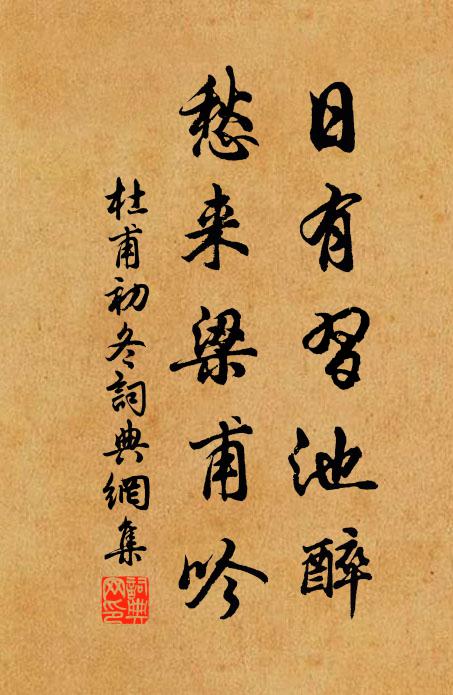 日有習池醉
愁来梁甫吟
杜甫初冬詞典網集
詞典網印